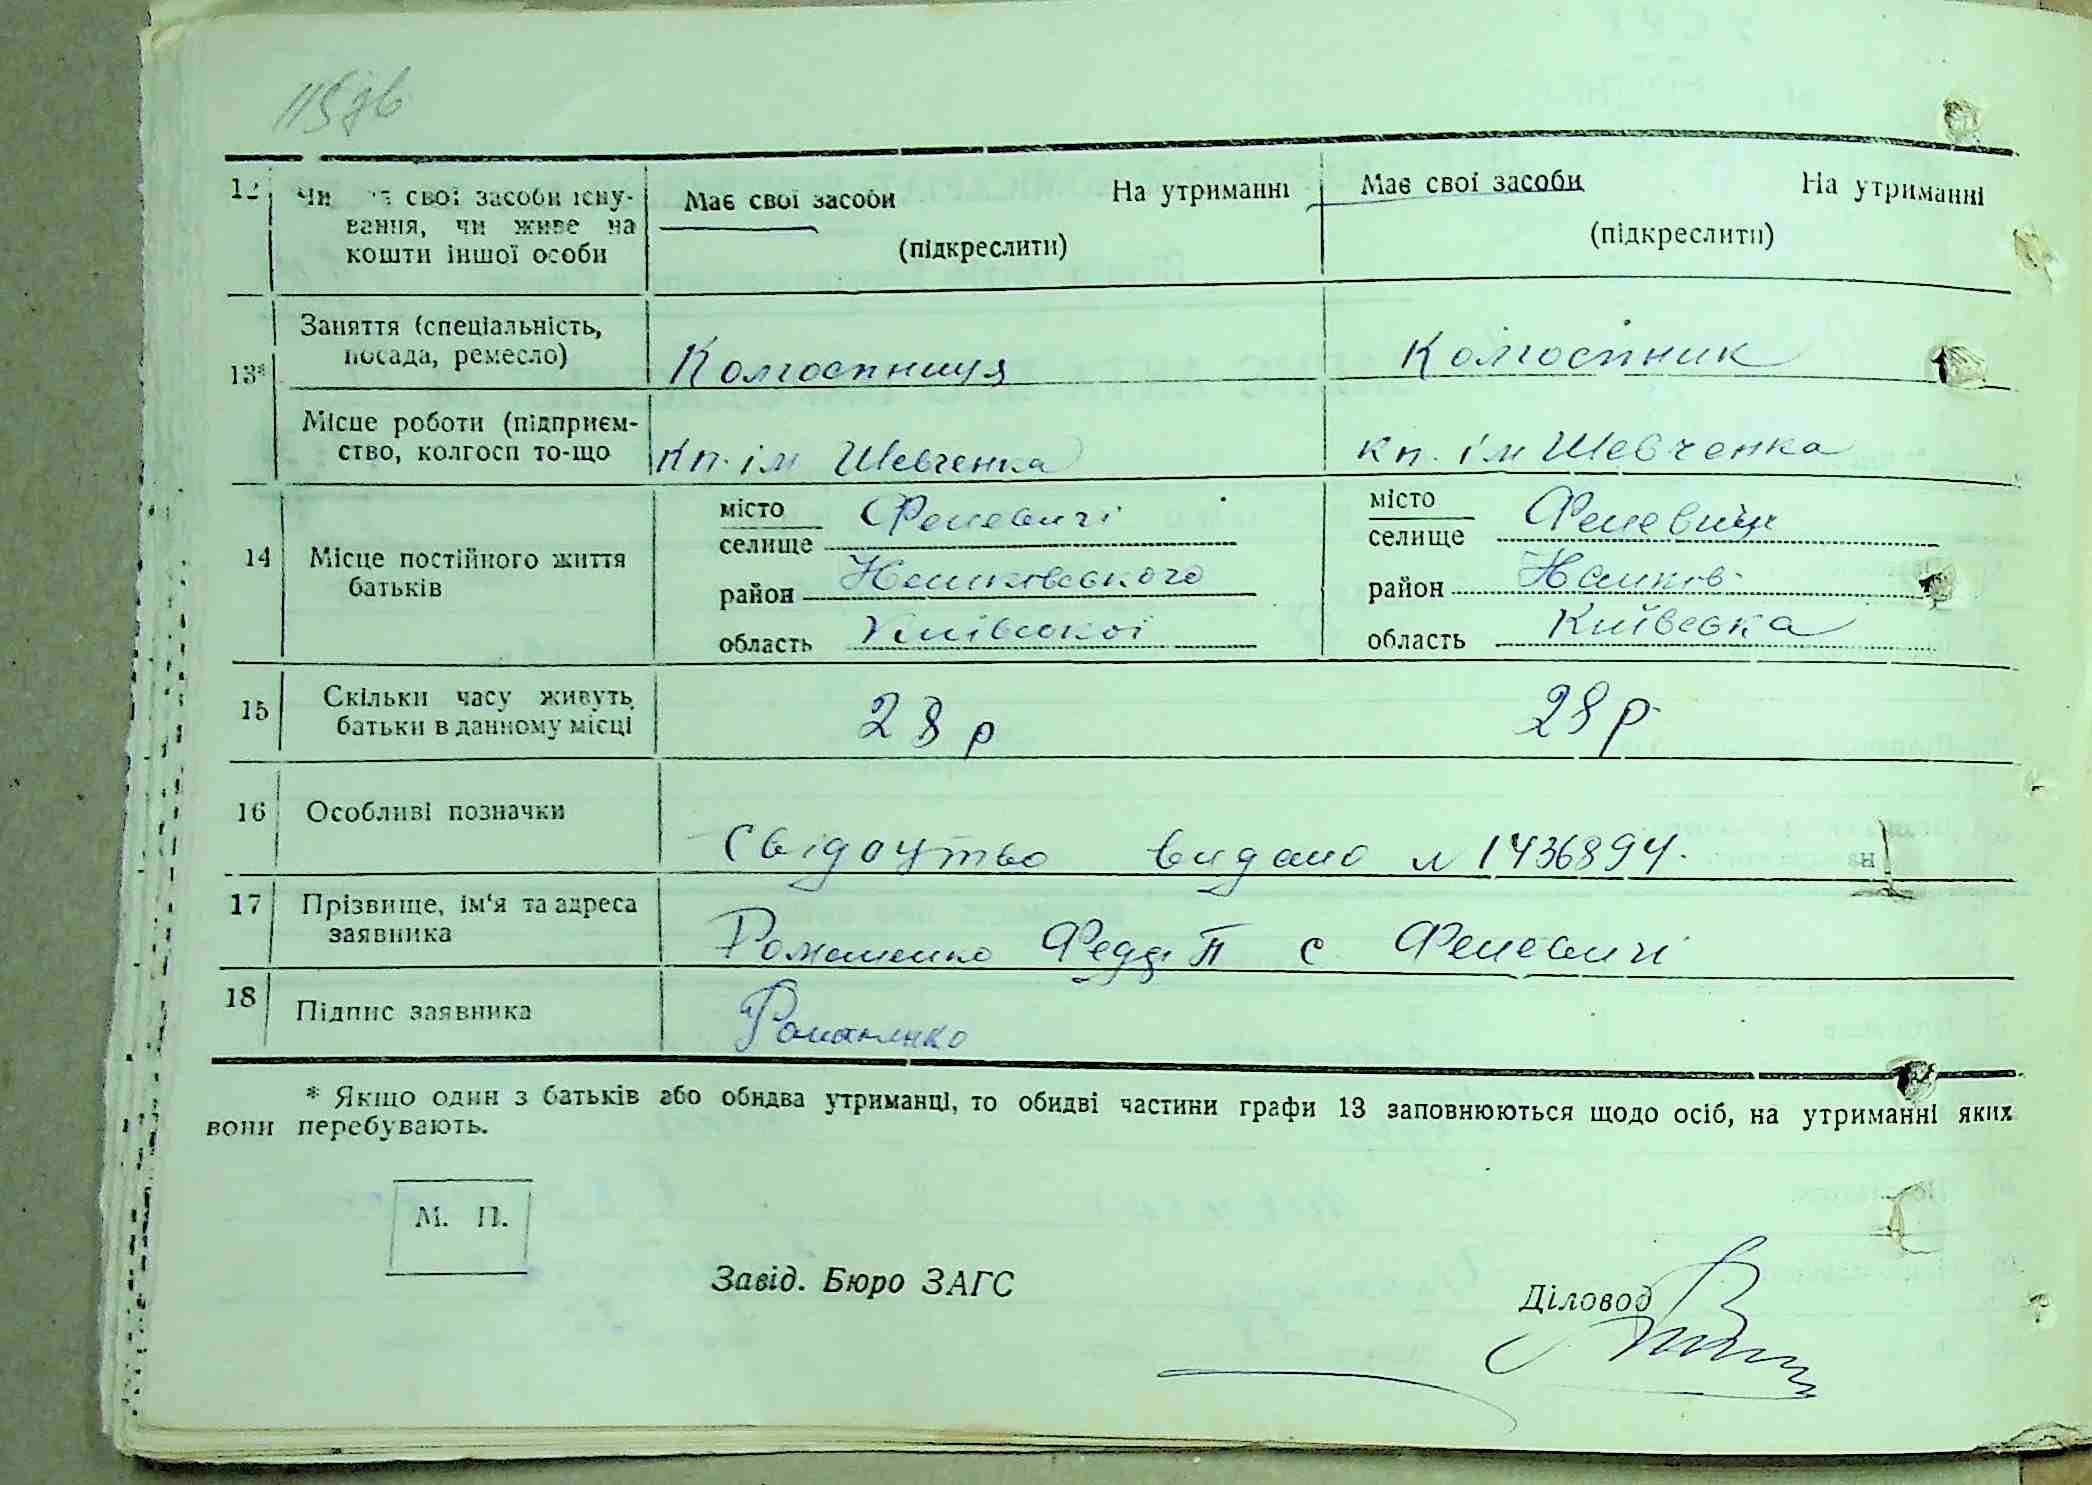 12 Чи свої засоби існу- Має свої засоби На утриманні Має свої засоби На утриманні
вання, чи живе на
кошти іншої особи (підкреслити) (підкреслити)
13* Заняття (спеціальність,
посада, ремесло) Колгоспниця Колгоспник
Місце роботи (підприєм-
ство, колгосп то-що кп. ім Шевченка кп. ім Шевченка
14 Місце постійного життя
батьків
місто Феневичі місто Феневичі
селище селище
район район
область Київської область Київська
15 Скільки часу живуть
батьки в данному місці 28 р 28 р
16 Особливі позначки
Свідоцтво видано № 1436894.
17 Прізвище, ім'я та адреса
заявника Романенко Фед. П с Феневичі
18 Підпис заявника Романенко
* Якщо один з батьків або обидва утриманці, то обидві частини графи 13 заповнюються щодо осіб, на утриманні яких
вони перебувають.
М. П.
Завід. Бюро ЗАГС
Діловод